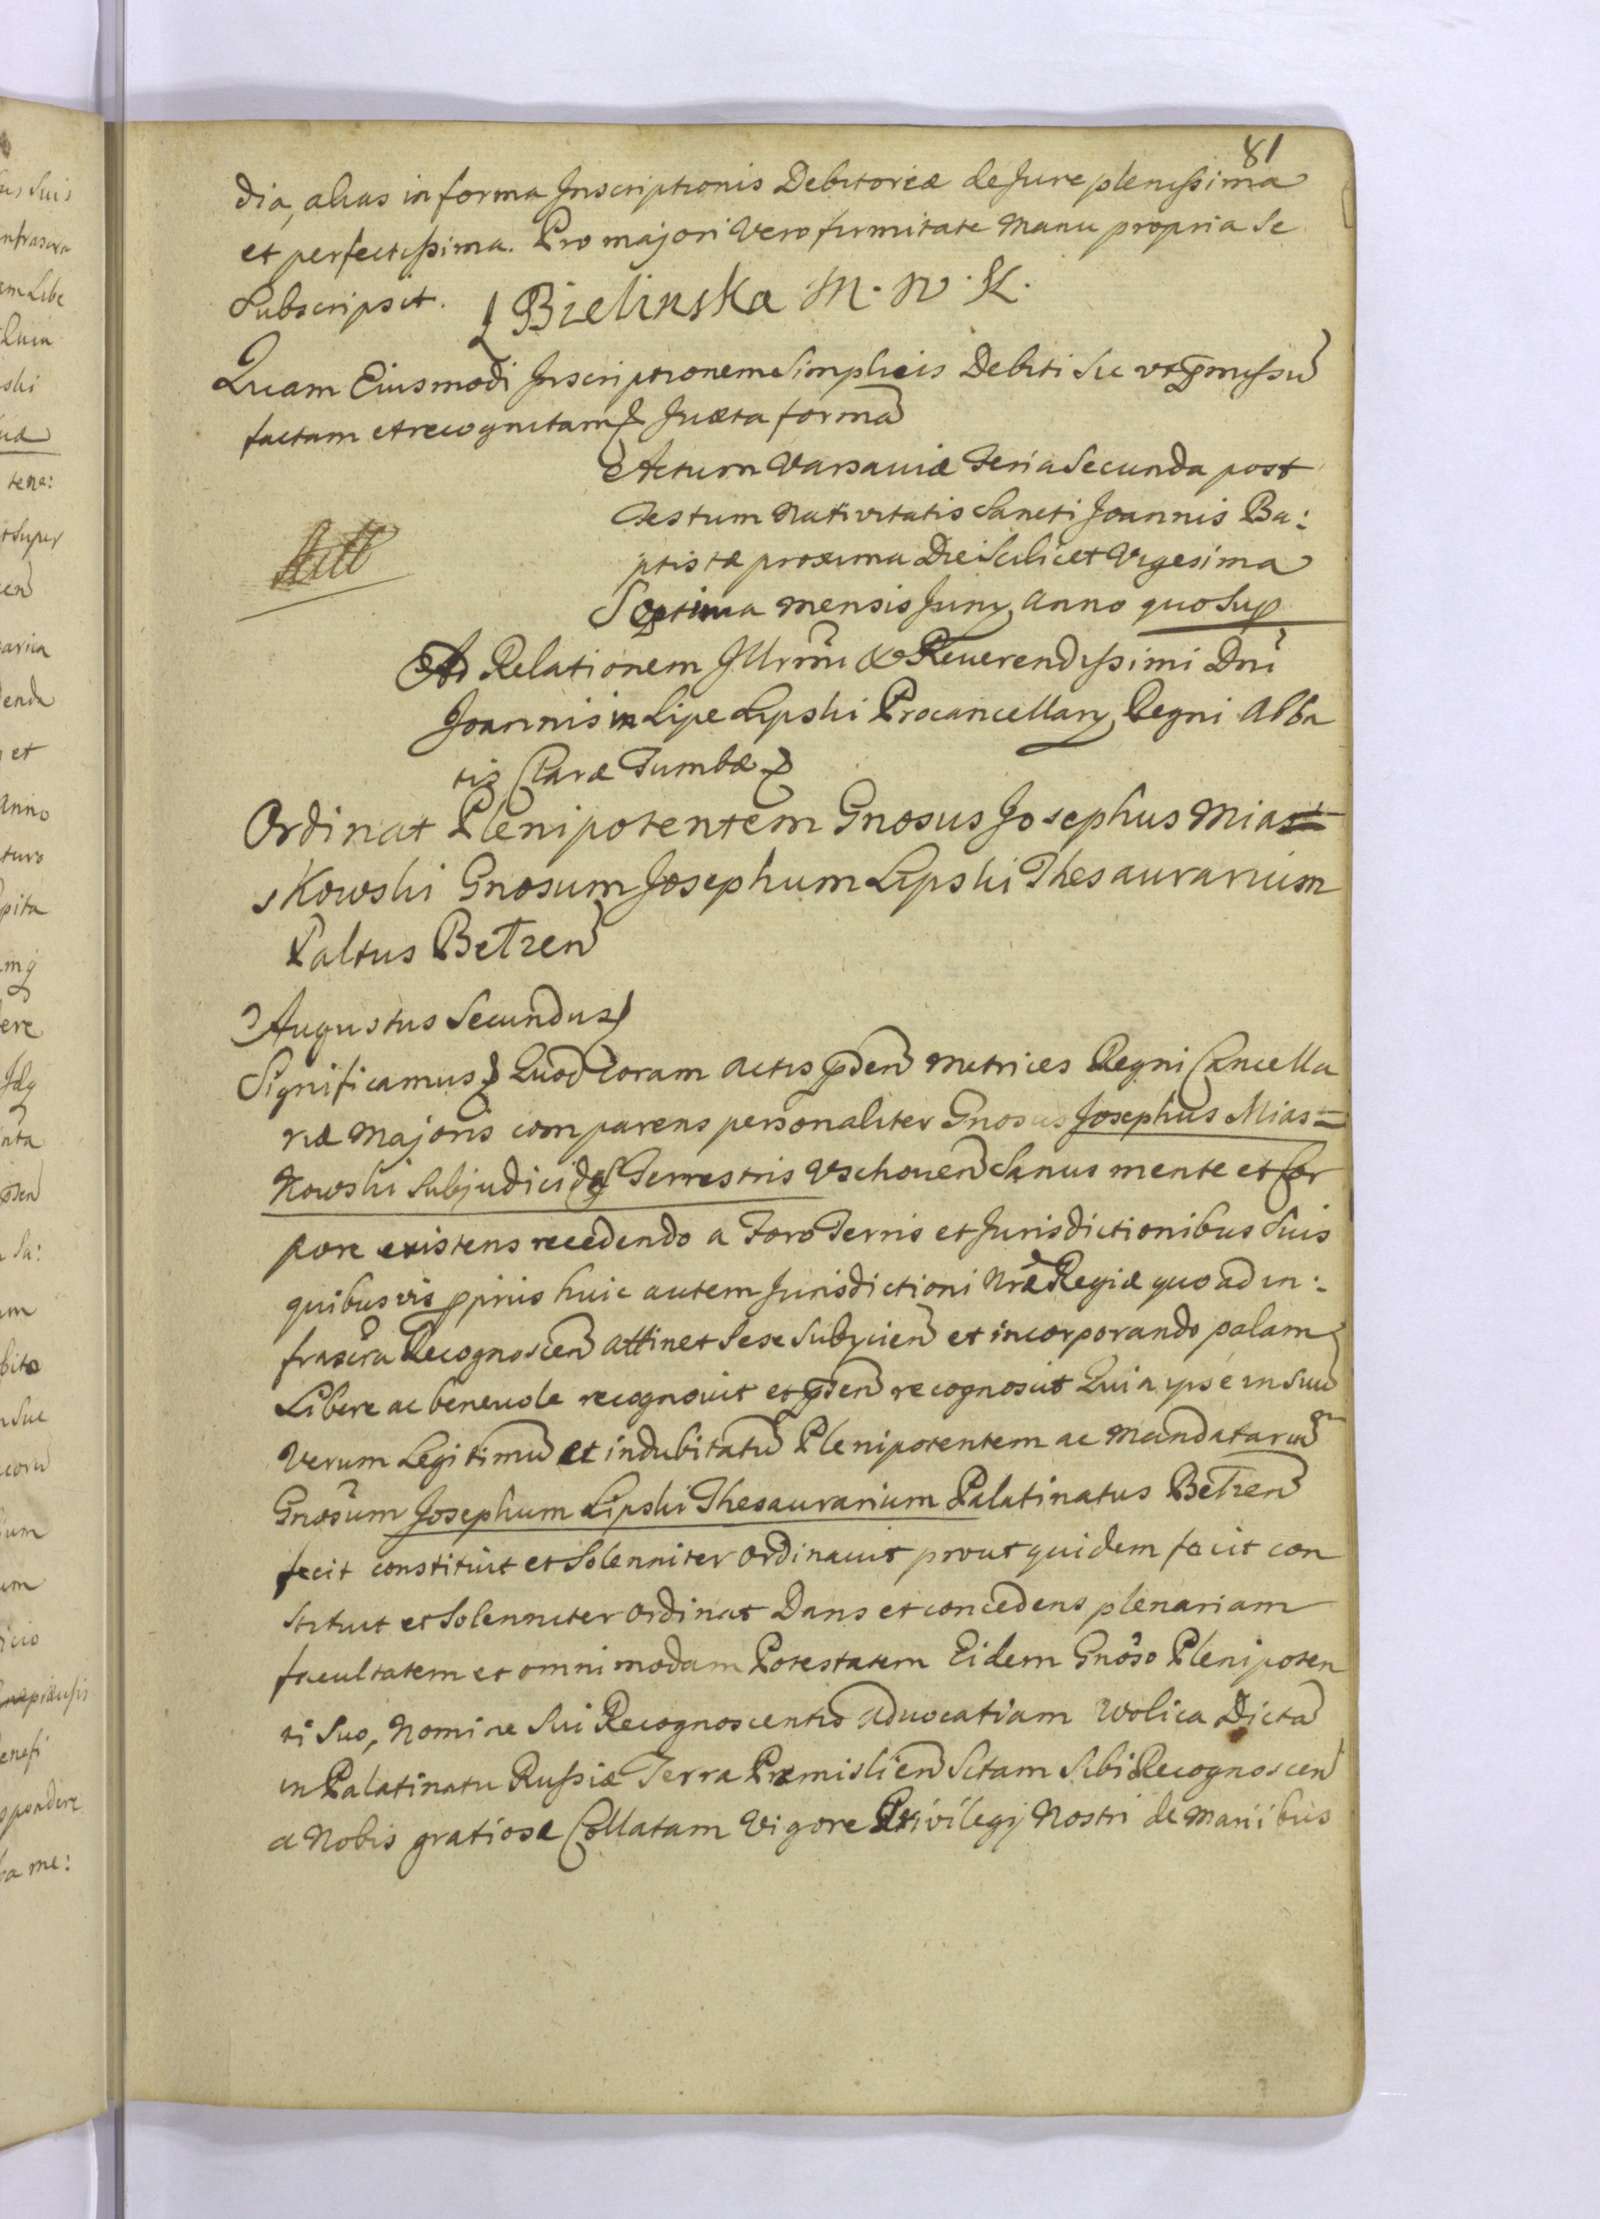 81
dia, alias in forma Inscriptionis Debitoriæ de Jure plenissima
et perfectissima. Pro majori Vero firmitate Manu propria se
Subscripsit. Bielinska M. W. K.
Quam Eiusmodi Inscriptionem Simplicis Debiti Sic
factam et recognitam Juxta formã
Actum Varsaviæ Feria Secunda post
Festum Nativitatis Sancti Joannis Ba:
ptistæ proxima Die Scilicet Vigesima
Septima Mensis Juny Anno quo Sup
Ad Relationem Illrmi & Reverendissimi Dni
Joannis in Lipe Lipski Procancellary Regni Abba
tis Claræ Tumbæ
Ordinat Plenipotentem Gnosus Josephus Mias=
kowski Gnosum Josephum Lipski Thesaurarium
Paltus Betzen
Augustus Secundus
Significamus Quod Coram Actis pñden Metrices Regni Cancella
riæ Majoris comparens personaliter Gnosus Josephus Mias=
kowski Subjudicid Terrestris Vschouen Sanus mente et Cor
pore existens recedendo a Foro Terris et Jurisdictionibus Suis
quibusvis pprius huic autem Jurisdictioni Nræ Regiæ quo ad in:
frascra Recognoscen attinet Sese Subycien et incorporando palam
Libere ac benevole recognovit et pñden recognoscit Quia ipse in Suũ
Verum Legitimũ et indubitatũ Plenipotentem ac Mandatariũ
Gnosum Josephum Lipski Thesaurarium Palatinatus Betzen
fecit constituit et Solenniter Ordinavit prout quidem facit con
stituit et Solenniter Ordinat Dans et concedens plenariam
facultatem et omnimodam Potestatem Eidem Gnoso Plenipoten
ti Suo, Nomine Sui Recognoscentis advocatiam Wolica Dictã
in Palatinatu Russiæ Terra Præmislien Sitam Sibi Recognoscen
a Nobis gratiose Collatam Vigore Privilegij Nostri de Manibus